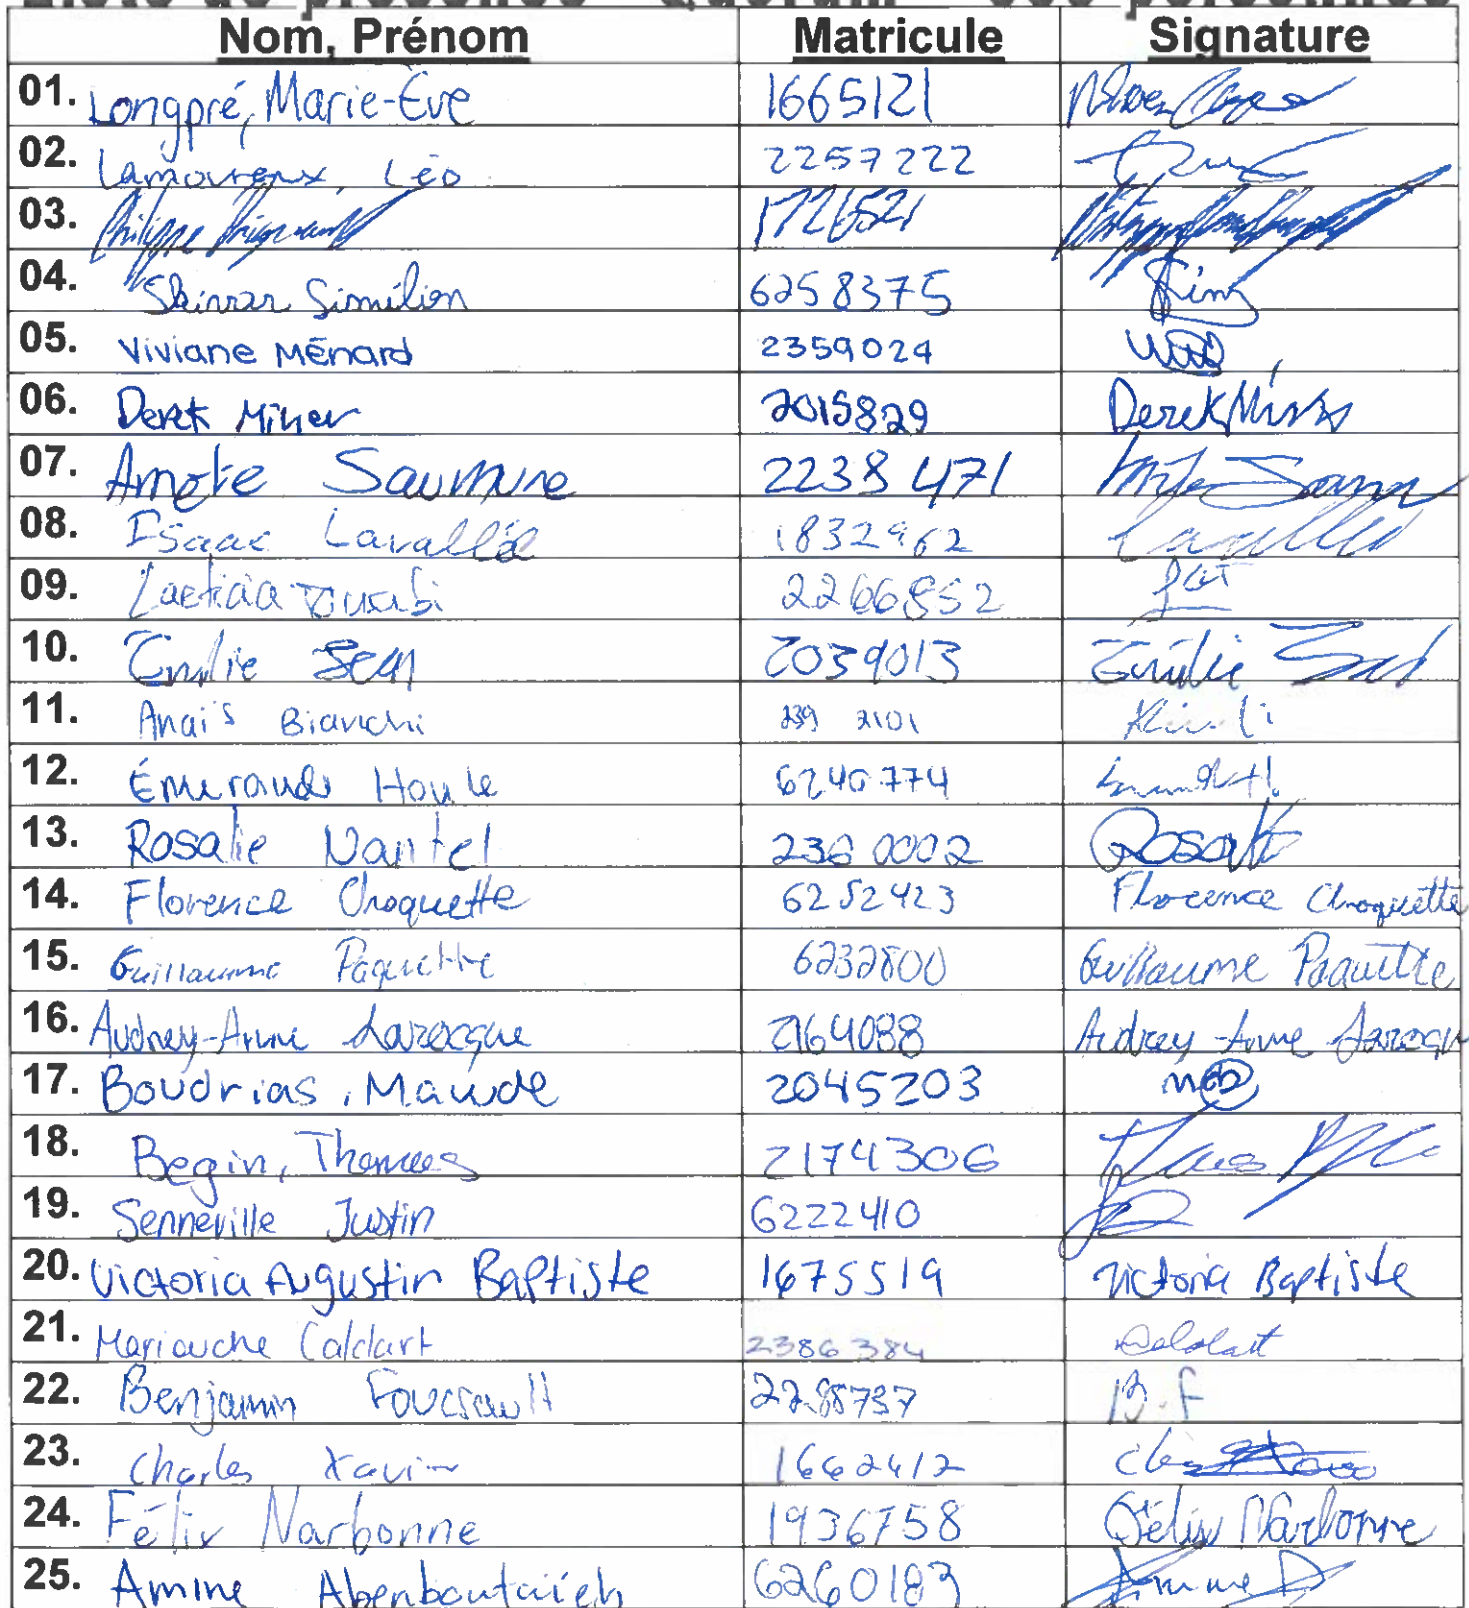 Liste de présence - Quorum
Nom, Prénom Matricule Signature
01. Longpré, Marie-Ève 1665121
02. Lamoureux, Léo 2257222
03. Philippe 1726521
04. Similien 6258375
05. Viviane Ménard 2359024
06. Derek Miner 2015829 Derek
07. Saumure 2238471
08. Isaac Lavallée 1832962
09. Laeticia 2266852
10. Emilie Sean 2039013 Emilie
11. Anaïs Bianchi 239 2101
12. Émeraude Houle 6240774
13. Rosalie Nantel 2360002
14. Florence Choquette 6252423 Florence Choquette
15. Guillaume Paquette 6232800 Guillaume Paquette
16. Audrey-Anne Larocque 2164088 Audrey-Anne
17. Boudrias, Maude 2045203
18. Begin, Thomas 2174306
19. Senneville Justin 6222410
20. Victoria Augustin Baptiste 1675519 Victoria Baptiste
21. Mariouche Caldart 2386384
22. Benjamin B.F
23. Charles Xavier 1662412
24. Félix Narbonne 1936758 Félix Narbonne
25. Amine 6260183 Amine